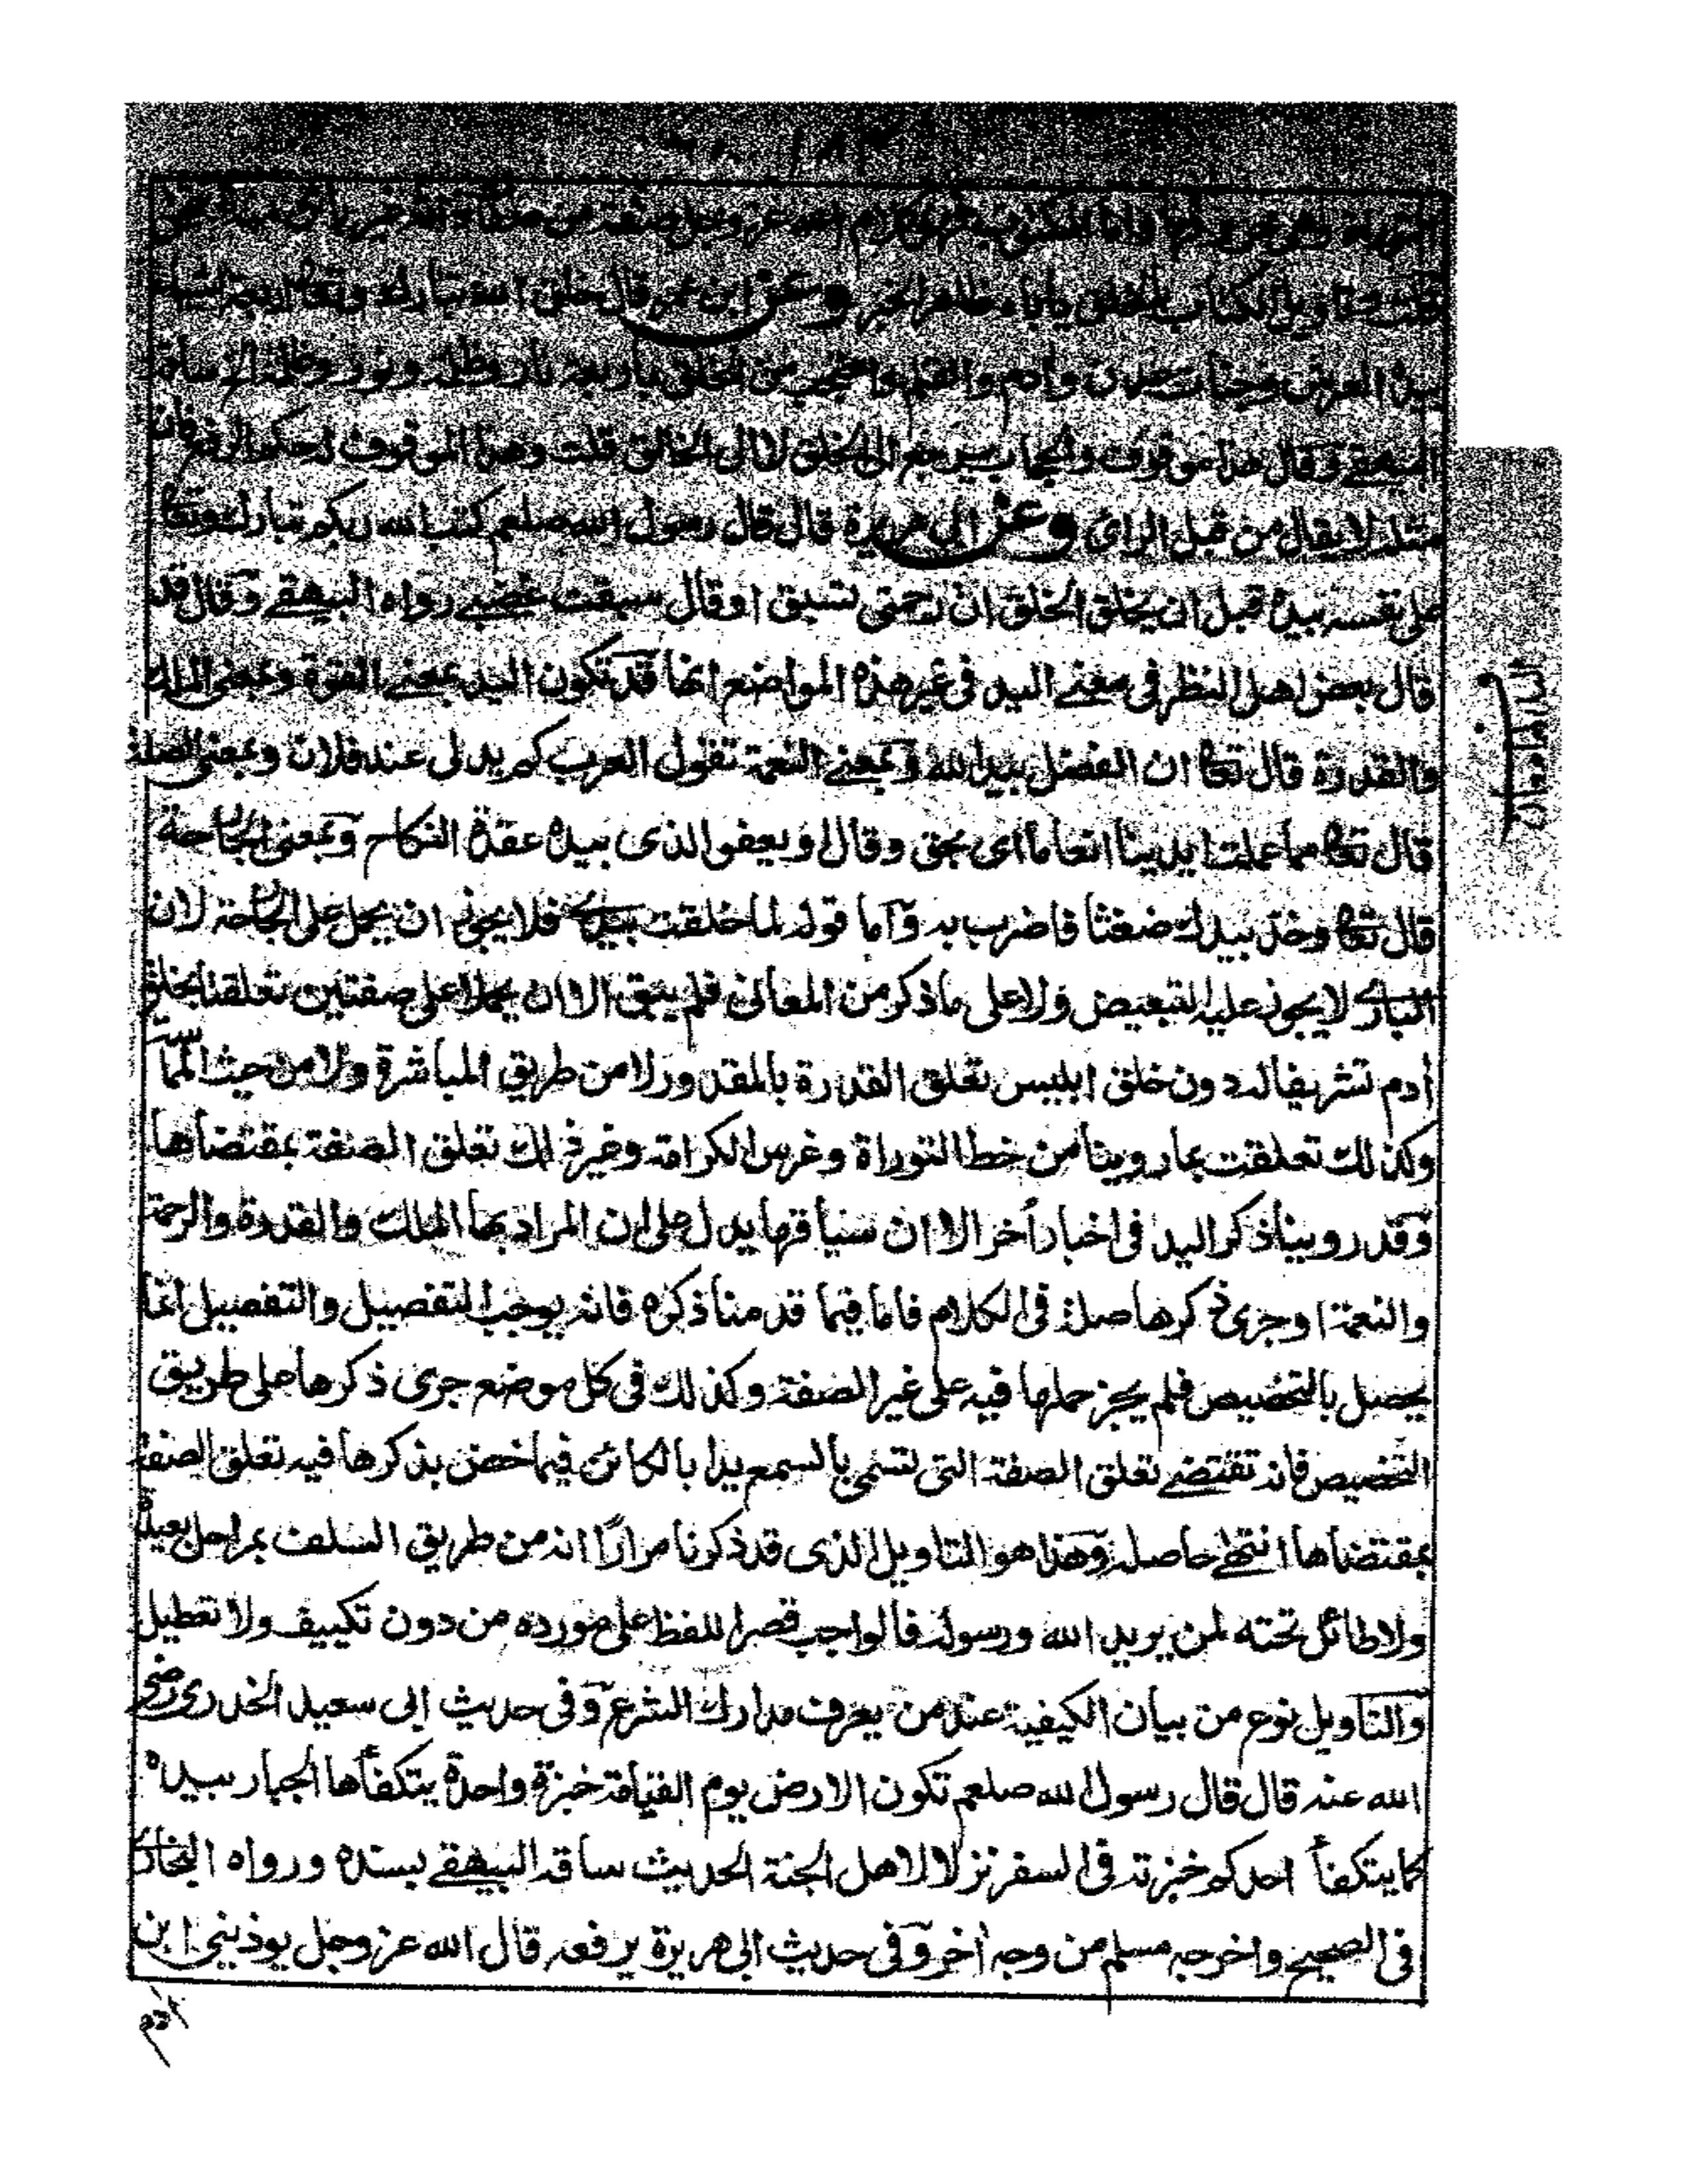 وهي غير واما المكتوب فهو كلام الله عز وجل صفة من صفات
قلت وتاويل الكتاب بالخلق ياباه ظاهر الخبر وعن ابن عمر قال خلق الله تبارك وتعا اربعة اشياء
بيده العرش وجنات عدن وادم والقلم واحتجب من الخلق باربعة نار وظلمة ونور وظلمة
البيهقي وقال هذا موقوف والحجاب يرجع الى الخلق لا الى الخالق قلت وهذا الموقوف له حكم الرفع فان
مثله لا يقال من قبل الراى وعن ابي هريرة قال قال رسول الله صلعم كتب الله ربكم تبارك وتعا
على نفسه بيده قبل ان يخلق الخلق ان رحمتى تسبق او قال سبقت غضبي رواه البيهقي وقال قد
قال بعض اهل النظر فى معنى اليد فى غير هذه المواضع انها قد تكون اليد بمعنى القوة وبمعنى الملك
والقدرة قال تعا ان الفضل بيد الله وبمعنى النعمة تقول العرب كم يد لى عند فلان وبمعنى الصلة
قال تعا مما عملت ايدينا انعاما اى نحن وقال او يعفو الذى بيده عقدة النكاح وبمعنى الجارحة
قال تعا وخذ بيدك ضغثا فاضرب به واما قوله لما خلقت بيدي فلا يجوز ان يحمل على الجارحة لان
البارى لا يجوز عليه التبعيض ولا على ما ذكر من المعانى فلم يبق الا ان يحملا على صفتين تعلقتا بخلق
ادم تشريفا له دون خلق ابليس تعلق القدرة بالمقدور لا من طريق المباشرة ولا من حيث المماسة
وكذلك تعلقت بما روينا من خط التوراة وغرس الكرامة وغير ذلك تعلق الصفة بمقتضاها
وقد روينا ذكر اليد فى اخبار أخر الا ان سياقها يدل على ان المراد بها الملك والقدرة والرحمة
والنعمة او جرى ذكرها صلة فى الكلام فاما فيما قدمنا ذكره فانه يوجب التفصيل والتفصيل انما
يحصل بالتخصيص فلم يجز حملها فيه على غير الصفة وكذلك فى كل موضع جرى ذكرها على طريق
التخصيص فانه تقتضي تعلق الصفة التى تسمى بالسمع يدا بالكائن فيما خص بذكرها فيه تعلق الصفة
بمقتضاها انتهى حاصله وهذا هو التاويل الذى قد ذكرنا مرارًا انه من طريق السلف بمراحل بعيدة
ولا طائل تحته لمن يريد الله ورسوله فالواجب قصر اللفظ على مورده من دون تكييف ولا تعطيل
والتاويل نوع من بيان الكيفية عند من يعرف مدارك الشرع وفى حديث ابى سعيد الخدرى رضي
الله عنه قال قال رسول الله صلعم تكون الارض يوم القيامة خبزة واحدة يتكفأها الجبار بيده
كما يتكفأ احدكم خبزته فى السفر نزلا لاهل الجنة الحديث ساقه البيهقي بسنده ورواه البخارى
فى الصحيح واخرجه مسلم من وجه أخر وفى حديث ابى هريرة يرفعه قال الله عز وجل يوذينى ابن
ادم